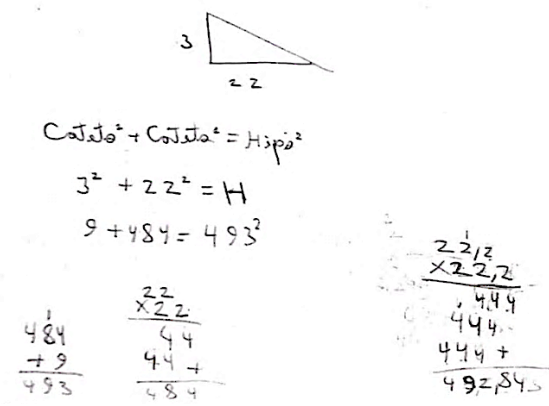 3
22
Cateto² + Cateto² = Hipo²
3² + 22² = H
9 + 484 = 493²
1
484
+ 9
493
22
×22
44
44+
484
1
22,2
×22,2
444
444
444+
492,84